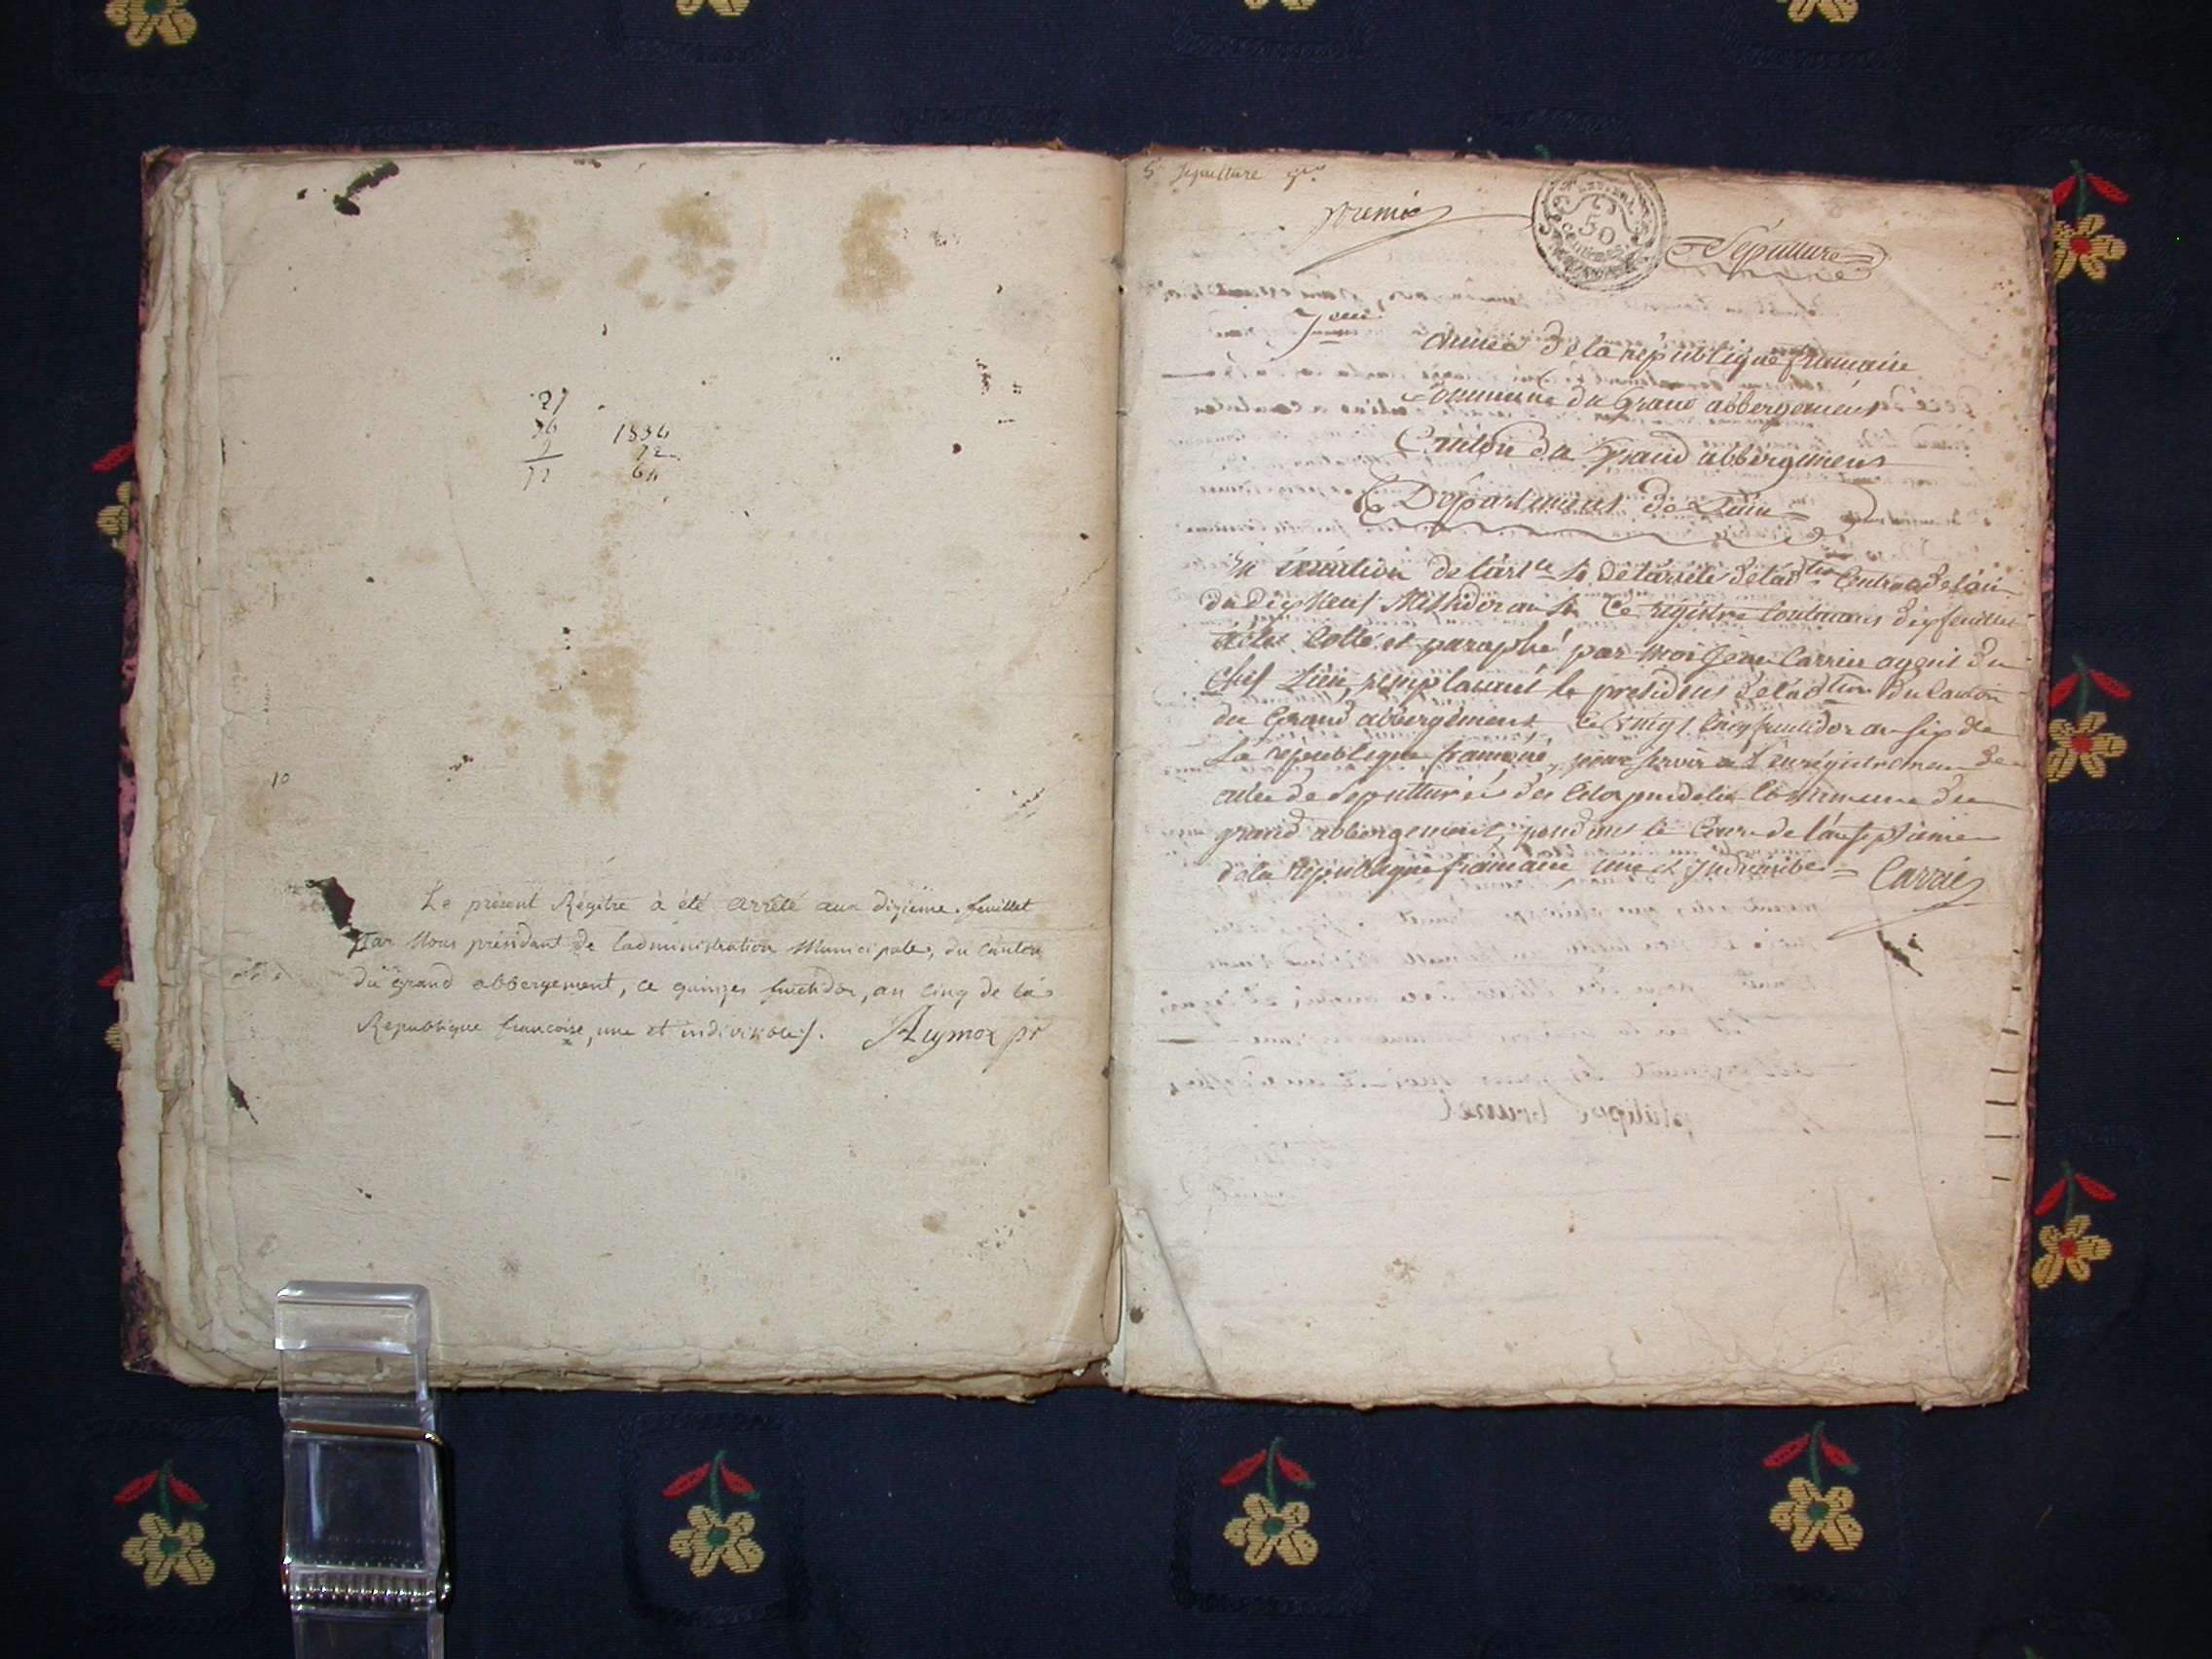 27
36
9
72
1836
72
64
10
Le présent Régitre à été arrêté aux dizieme feuillet
Par Nous présidant de Ladministration Municipale, du Canton
du grand abbergement, ce quinzes fructidor, an Cinq de la
Republique francoise, une et indivisible. Aymox pt
5e Sepulture
premie
50
centimes
Sépulture
7eme
Année de la republique francaise
Commune du Grand abbergement
Canton du Grand abbergement
Département de Lain
En éxécution de lart 4 de larrété de lad.tion Centrale de lain
du dix Neuf Messidor an 4 Ce régistre Contenant dix feuillet
Cotté et paraphé par Moi Carrier agent du
Chef Lieu, remplacant le president de lad.tion du Canton
du Grand abbergement le vingt Cinq fructidor an six de
La republique francaise, pour servir à L'enrégistrement de
actes de Sepultures des Commune du
grand abbergement, pendant le Cours de lan septieme
de la République francaise, une et Indivisible = Carrier
philippe brunet